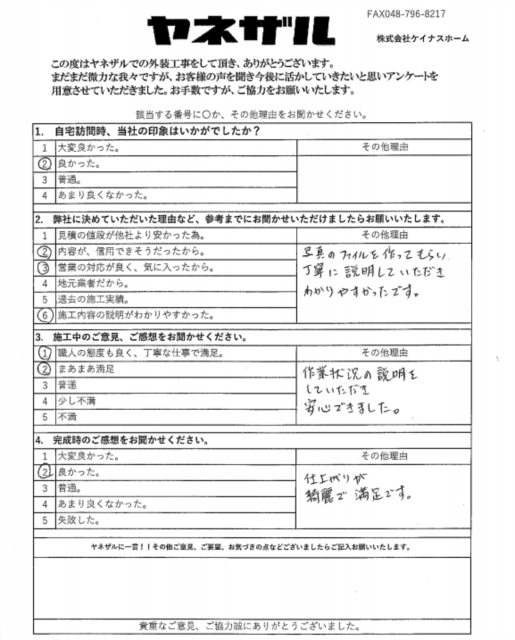 FAX048-796-8217
ヤネザル
株式会社ケイナスホーム
この度はヤネザルでの外装工事をして頂き、ありがとうございます。
まだまだ微力な我々ですが、お客様の声を聞き今後に活かしていきたいと思いアンケートを
用意させていただきました。お手数ですが、ご協力をお願いいたします。
該当する番号に〇か、その他理由をお聞かせください。
1. 自宅訪問時、当社の印象はいかがでしたか？
1 大変良かった。 その他理由
② 良かった。
3 普通。
4 あまり良くなかった。
2. 弊社に決めていただいた理由など、参考までにお聞かせいただけましたらお願いいたします。
1 見積の値段が他社より安かった為。 その他理由
② 内容が、信用できそうだったから。
③ 営業の対応が良く、気に入ったから。
4 地元業者だから。
5 過去の施工実績。
⑥ 施工内容の説明がわかりやすかった。
写真のファイルを作ってもらい
丁寧に説明していただき
わかりやすかったです。
3. 施工中のご意見、ご感想をお聞かせください。
① 職人の態度も良く、丁寧な仕事で満足。 その他理由
② まあまあ満足
3 普通
4 少し不満
5 不満
作業状況の説明を
していただき
安心できました。
4. 完成時のご感想をお聞かせください。
1 大変良かった。 その他理由
② 良かった。
3 普通。
4 あまり良くなかった。
5 失敗した。
仕上がりが
綺麗で満足です。
ヤネザルに一言！！その他ご意見、ご要望、お気づきの点などございましたらご記入お願いいたします。
貴重なご意見、ご協力誠にありがとうございました。